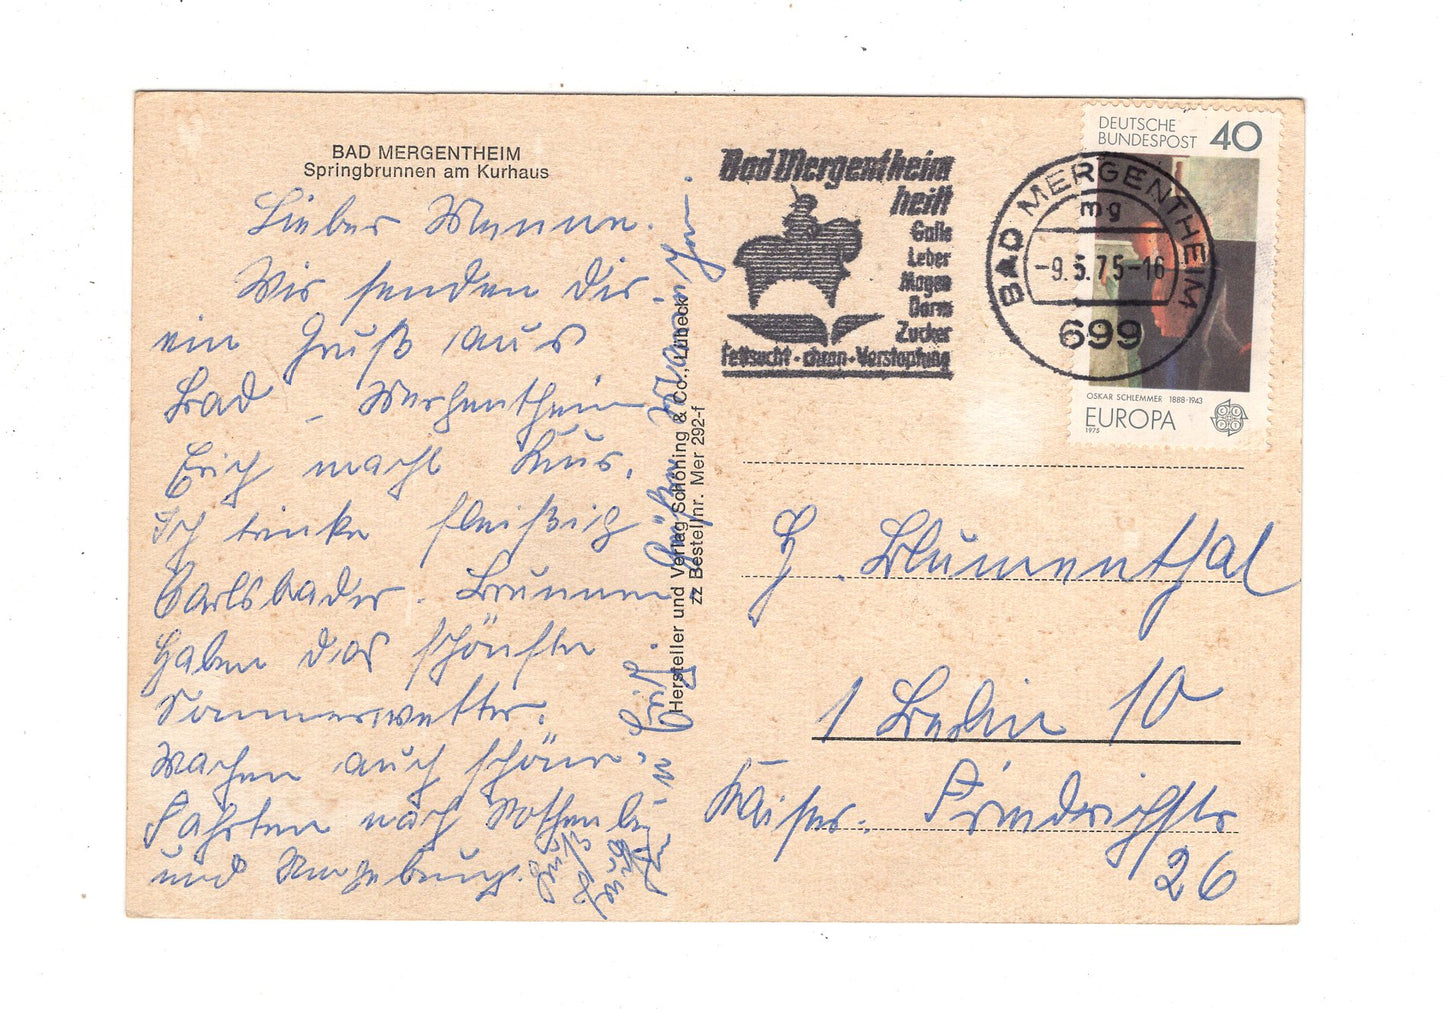 BAD MERGENTHEIM
Springbrunnen am Kurhaus
Lieber Menne.
Wir senden dir
ein Gruß aus
Bad - Merhentheim
Erich macht Kur.
Ich trinke fleißig
Carlsbader. Brunnen
Haben das schönste
Sommerwetter.
Machen auch schöne
Fahrten nach Rothenburg
und Umgebung.
Es grüßt
Hersteller und Verlag Schöning & Co., Lübeck
zz Bestellnr. Mer 292-f
Bad Mergentheim
heilt
Galle
Leber
Magen
Darm
Zucker
Fettsucht · chron · Verstopfung
BAD MERGENTHEIM
mg
-9.5.75-16
699
DEUTSCHE
BUNDESPOST 40
OSKAR SCHLEMMER 1888-1943
EUROPA
1975
CEPT
H. Blumenthal
1 Berlin 10
Kaiser. Friedrichstr
26